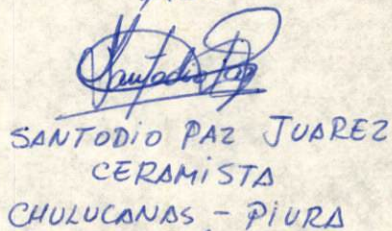 Santodio Paz
SANTODIO PAZ JUAREZ
CERAMISTA
CHULUCANAS - PIURA